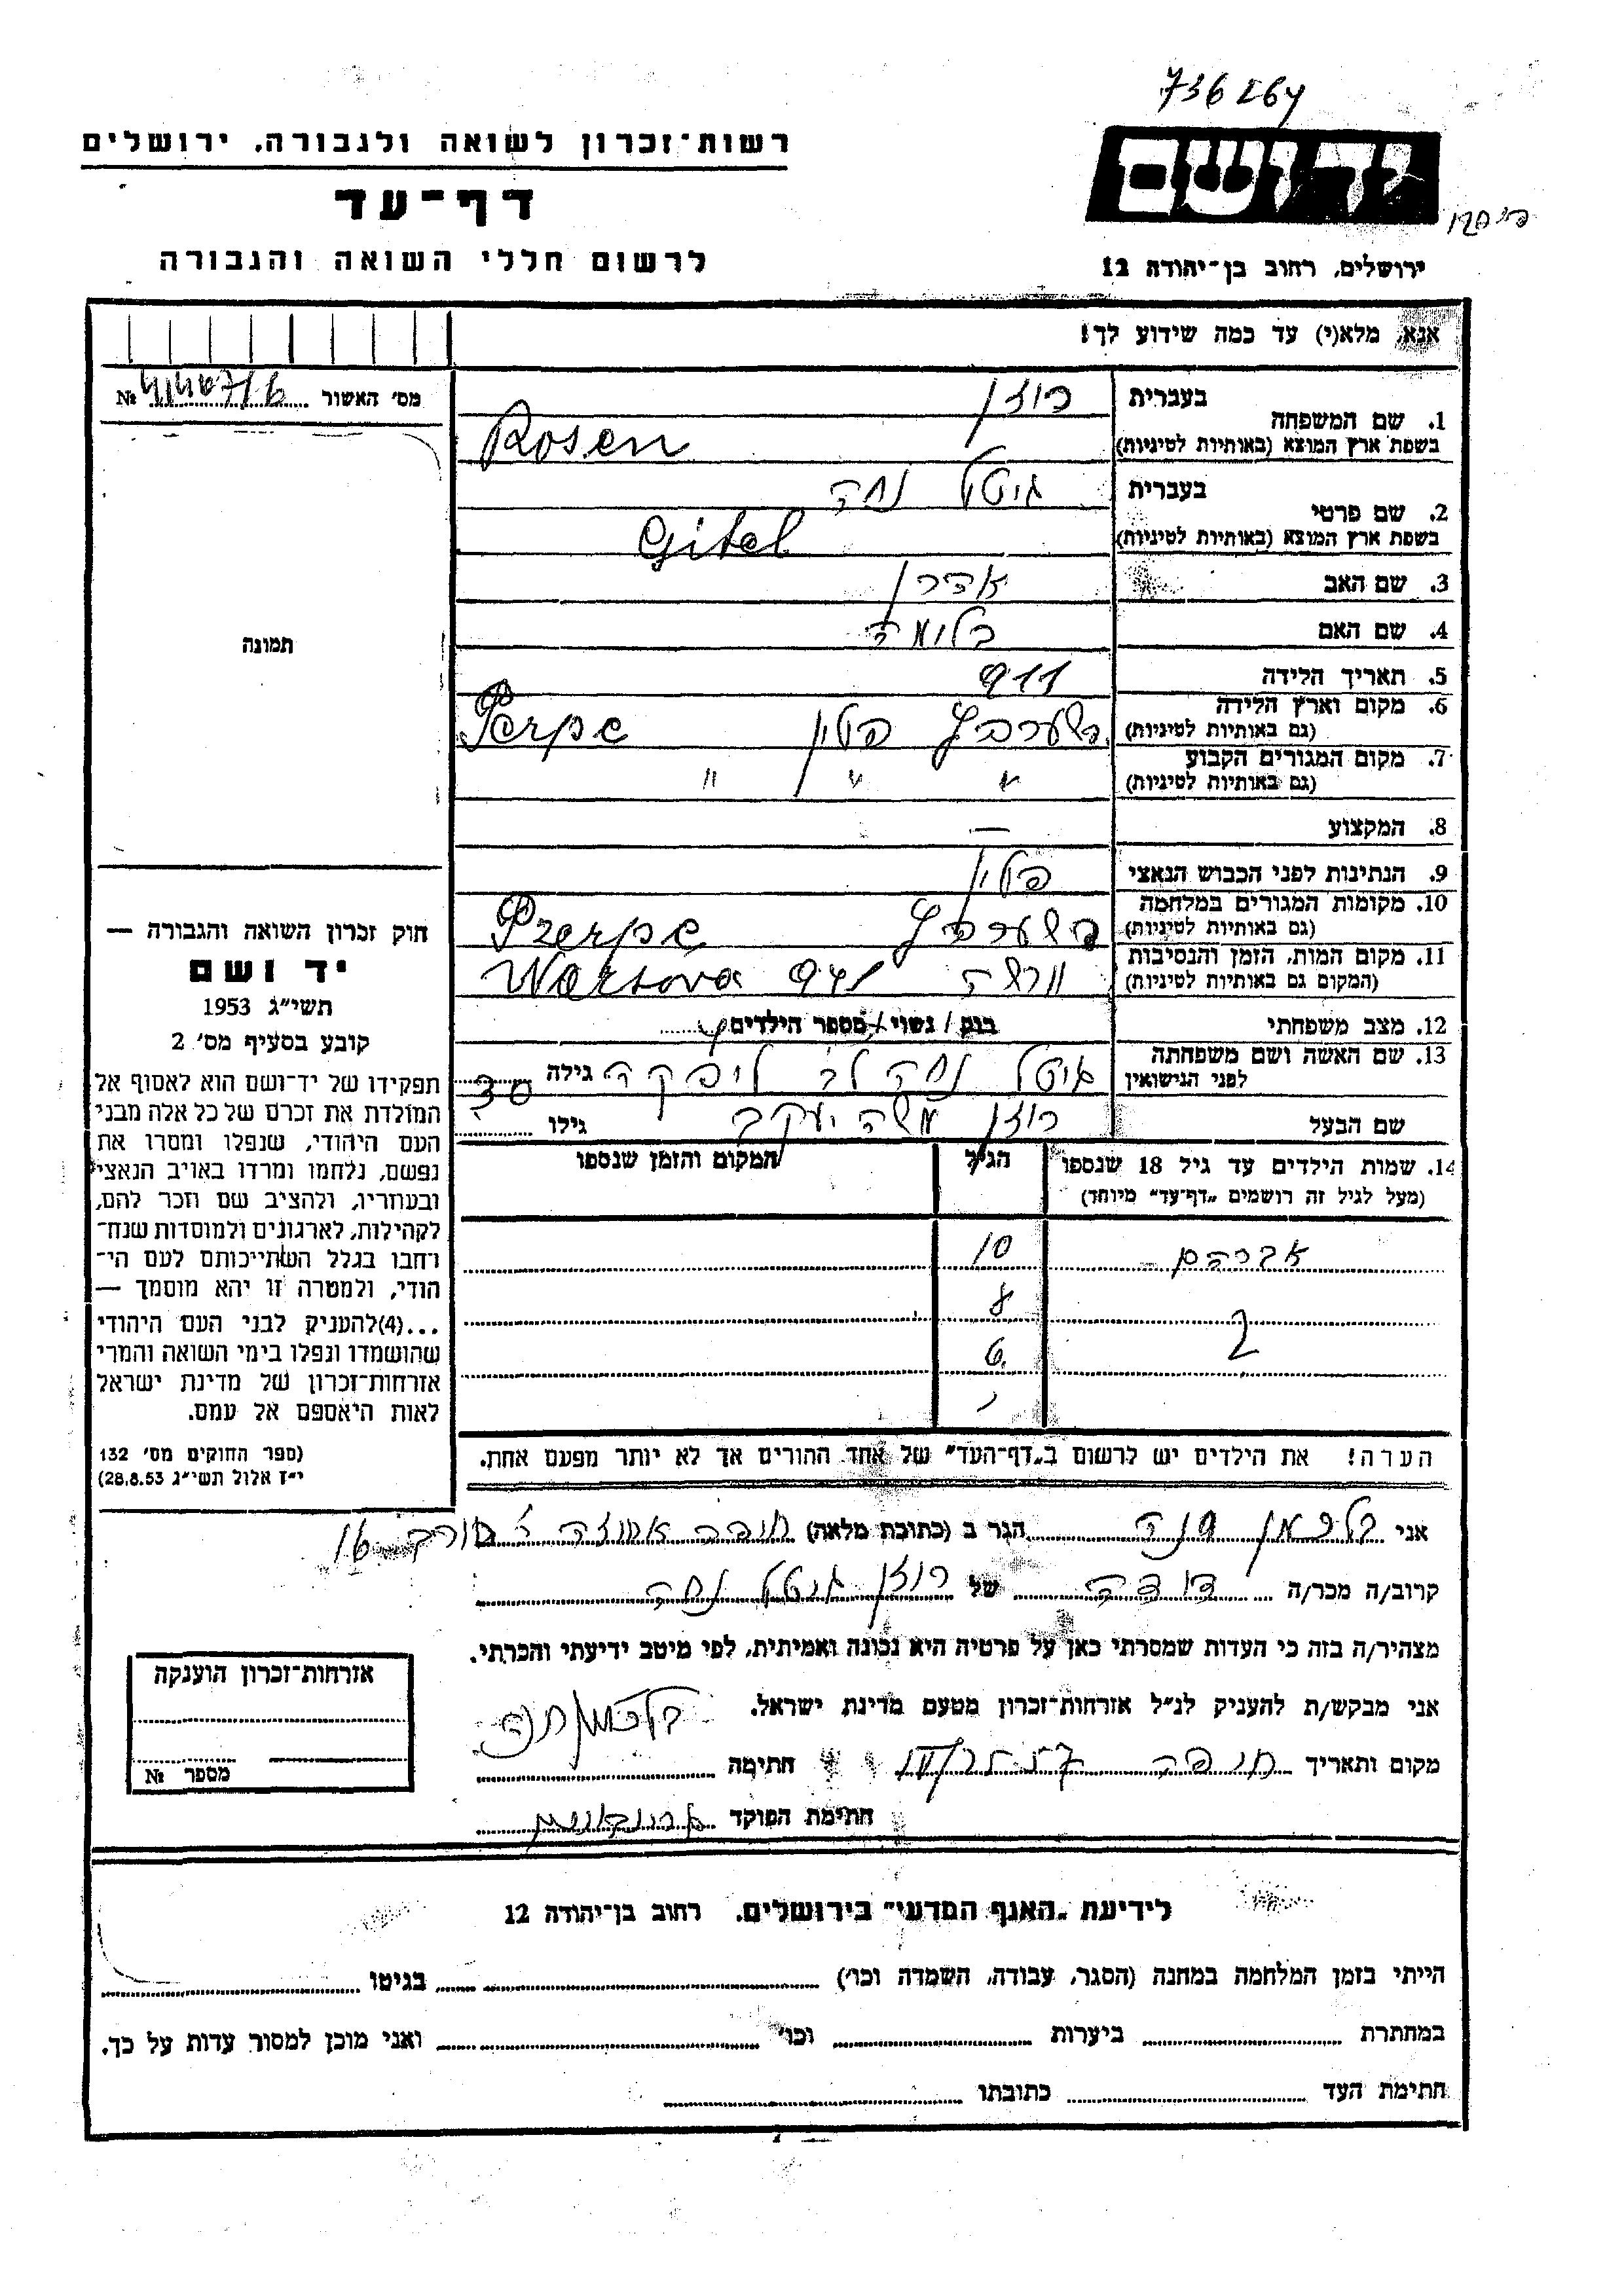 736264
רשות־זכרון לשואה ולגבורה, ירושלים
ידושם
דף־עד
לרשום חללי השואה והגבורה
ירושלים, רחוב בן־יהודה 12
אנא, מלא(י) עד כמה שידוע לך!
מס׳ האשור №
1. שם המשפחה בעברית רוזן
בשפת ארץ המוצא (באותיות לטיניות) Rosen
2. שם פרטי בעברית גיטל נחה
בשפת ארץ המוצא (באותיות לטיניות) Gitel
3. שם האב אהרן
4. שם האם בלומה
5. תאריך הלידה 911
6. מקום וארץ הלידה פולין
(גם באותיות לטיניות)
7. מקום המגורים הקבוע " " "
(גם באותיות לטיניות)
8. המקצוע —
9. הנתינות לפני הכבוש הנאצי פולין
10. מקומות המגורים במלחמה
(גם באותיות לטיניות)
11. מקום המות, הזמן והנסיבות ורשה 941 Warsova
(המקום גם באותיות לטיניות)
12. מצב משפחתי / נשוי / מספר הילדים
13. שם האשה ושם משפחתה לפני הנישואין גיטל נחה לב גילה 30
שם הבעל רוזן משה יעקב גילו
תמונה
14. שמות הילדים עד גיל 18 שנספו הגיל המקום והזמן שנספו
(מעל לגיל זה רושמים „דף־עד” מיוחד)
אברהם 10
8
2
6
הערה! את הילדים יש לרשום ב„דף־העד” של אחד ההורים אך לא יותר מפעם אחת.
חוק זכרון השואה והגבורה —
יד ושם
תשי״ג 1953
קובע בסעיף מס׳ 2
תפקידו של יד־ושם הוא לאסוף אל
המולדת את זכרם של כל אלה מבני
העם היהודי, שנפלו ומסרו את
נפשם, נלחמו ומרדו באויב הנאצי
ובעוזריו, ולהציב שם וזכר להם,
לקהילות, לארגונים ולמוסדות שנח־
רחבו בגלל השתייכותם לעם הי־
הודי, ולמטרה זו יהא מוסמך —
...(4)להעניק לבני העם היהודי
שהושמדו ונפלו בימי השואה והמרי
אזרחות־זכרון של מדינת ישראל
לאות היאספם אל עמם.
(ספר החוקים מס׳ 132
י״ז אלול תשי״ג 28.8.53)
אני הגר ב (כתובת מלאה) חיפה 16
קרוב/ה מכר/ה דודה של רוזן גיטל נחה
מצהיר/ה בזה כי העדות שמסרתי כאן על פרטיה היא נכונה ואמיתית, לפי מיטב ידיעתי והכרתי.
אני מבקש/ת להעניק לנ״ל אזרחות־זכרון מטעם מדינת ישראל.
מקום ותאריך חיפה חתימה
חתימת הפוקד
אזרחות־זכרון הוענקה
מספר №
לידיעת „האגף המדעי” בירושלים, רחוב בן־יהודה 12
הייתי בזמן המלחמה במחנה (הסגר, עבודה, השמדה וכו׳) בגיטו
במחתרת ביערות וכו׳ ואני מוכן למסור עדות על כך.
חתימת העד כתובתו